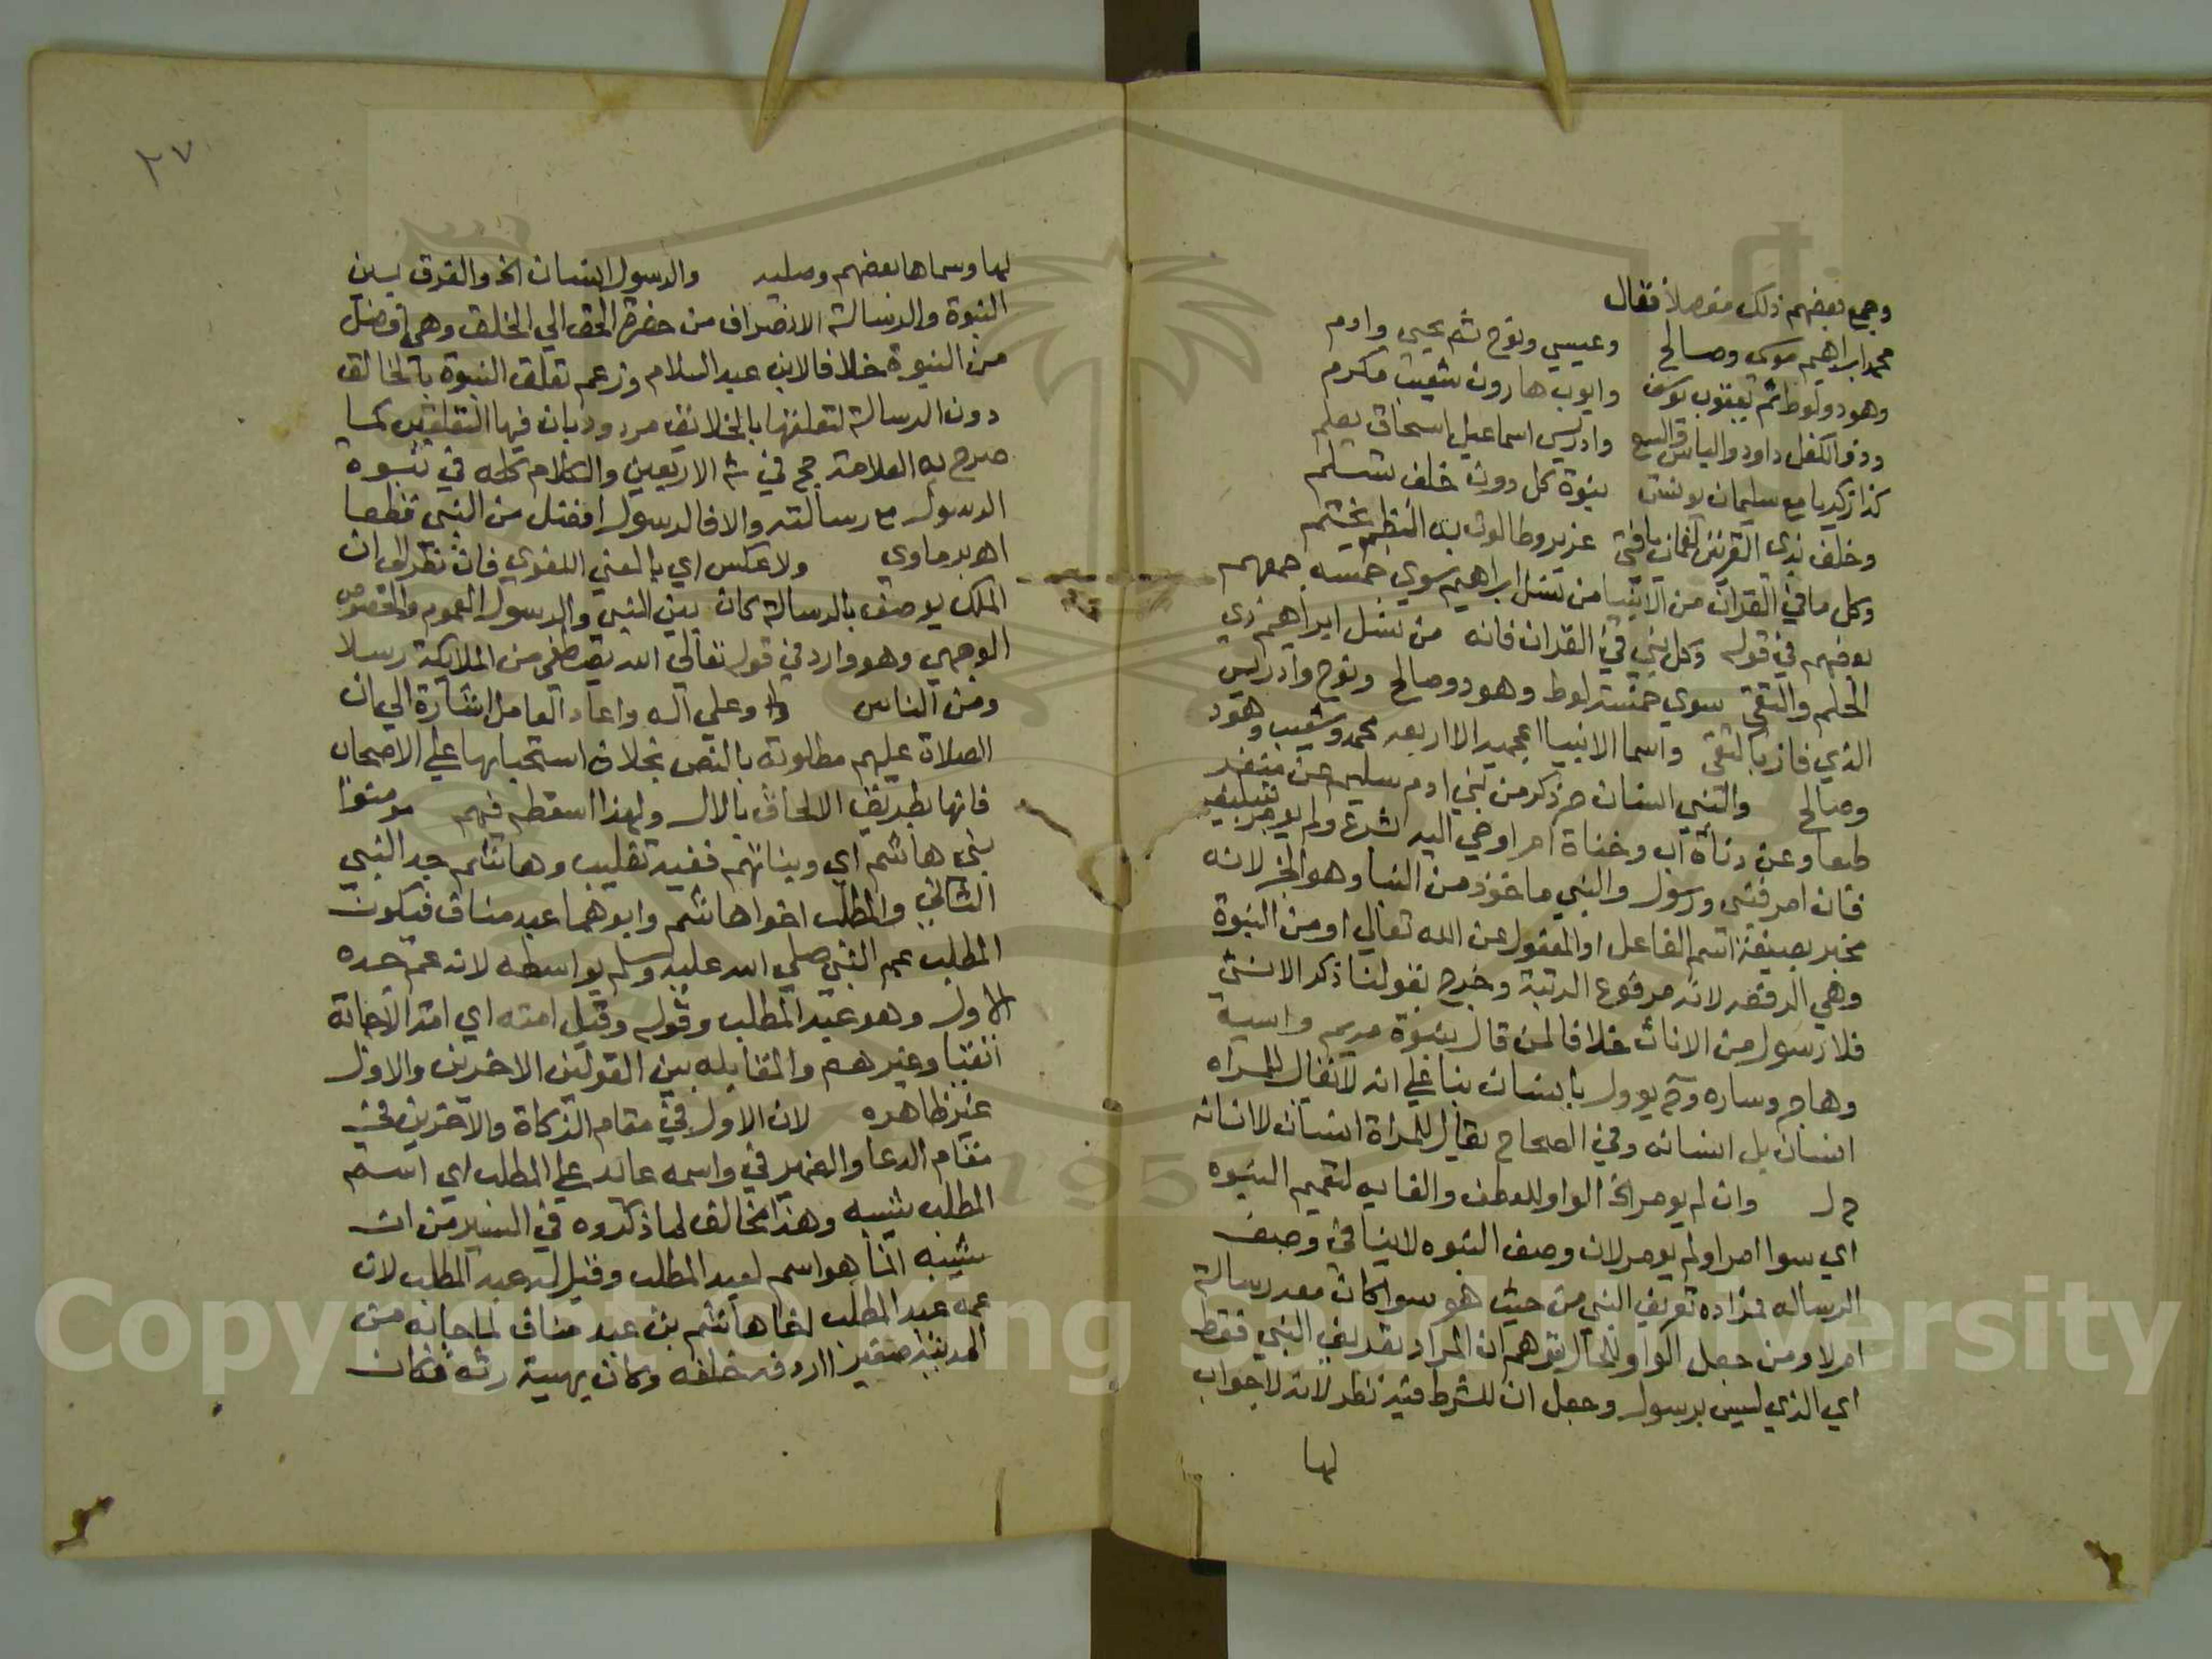 وجمع بعضهم ذلك مفصلا فقال
محمد ابراهيم موسى وصالح وعيسي ونوح ثم يحيى وادم
وهود ولوط ثم يعقوب يوسف وايوب هارون شعيب مكرم
وذو الكفل داود والياس واليسع وادريس اسماعيل اسحاق يعلم
كذا زكريا مع سليمان يونس بنوة كل دون خلف تسلم
وخلف بذي القرنين لقمان يا فتى عزير وطالوت به النظم يختم
وكل ما في القران من الانبيا من نسل ابراهيم سوي خمسه جمعهم
بعضهم في قوله وكل نبي في القران فانه من نسل ابراهيم ذي
الحلم والتقى سوي خمسة لوط وهود وصالح ونوح وادريس
الذي فاز بالتقى واسما الانبيا اعجميه الا اربعه محمد وشعيب وهود
وصالح والنبي انسان حر ذكر من بني ادم سليم عن منفر
طبعا وعن دناة اب وخناة ام اوحي اليه الشرع ولم يومر بتبليغه
فان امر فنبي ورسول والنبي ماخوذ من النبا وهو الخبر لانه
مخبر بصيغة اسم الفاعل او المفعول عن الله تعالي او من النبوة
وهي الرفعه لانه مرفوع الرتبة وخرج بقولنا ذكر الانثى
فلا رسول من الاناث خلافا لمن قال بنبوة مريم واسية
وهاجر وساره وح يوول بانسان بنا علي انه لا يقال للمراه
انسان بل انسانه وفي الصحاح يقال للمراة انسان لا انسانه
ح ل وان لم يومر الخ الواو للعطف والغايه لتعميم النبوه
اي سوا امر او لم يومر لان وصف النبوه لا ينافي وصف
الرساله فمراده تعريف النبي من حيث هو سوا كان معه رسالة
ام لا ومن جعل الواو للحال توهم ان المراد تعريف النبي فقط
اي الذي ليس برسول وجعل ان للشرط فيه نظر لانه لا جواب
لها
٢٧
لها وسماها بعضهم وصليه والرسول انسان الخ والفرق بين
النبوة والرسالة الانصراف من حضرة الحق الي الخلق وهي افضل
من النبوة خلافا لابن عبد السلام وزعم تعلق النبوة بالخالق
دون الرسالة لتعلقها بالخلائق مردود بان فيها التعلقين كما
صرح به العلامة حج في ش الاربعين والكلام كله في نبوة
الرسول مع رسالته والا فالرسول افضل من النبي قطعا
اهـ برماوي ولا عكس اي بالمعني اللغوي فان نظر الى ان
الملك يوصف بالرسالة كان بين النبي والرسول العموم والخصوص
الوجهي وهو وارد في قوله تعالي الله يصطفي من الملايكة رسلا
ومن الناس وعلي اله واعاد العامل اشارة الي ان
الصلاة عليهم مطلوبة بالنص بخلاف استحبابها علي الاصحاب
فانها بطريق الالحاق بالال ولهذا اسقطه فيهم مومنوا
بني هاشم اي وبناتهم ففيه تغليب وهاشم جد النبي
الثاني والمطلب اخوا هاشم وابوهما عبد مناف فيكون
المطلب عم النبي صلي الله عليه وسلم بواسطه لانه عم جده
الاول وهو عبد المطلب وقوله وقيل امته اي امة الاجابة
اتقيا وغيرهم والمقابله بين القولين الاخرين والاول
غير ظاهره لان الاول في مقام الزكاة والاخرين في
مقام الدعا والضمير في واسمه عائد علي المطلب اي اسم
المطلب شيبه وهذا مخالف لما ذكروه في السير من ان
شيبه انما هو اسم لعبد المطلب وقيل له عبد المطلب لان
عمه عبد المطلب اخا هاشم بن عبد مناف لما جا به من
المدينة صغيرا اردفه خلفه وكان بهيئة رثه فكان